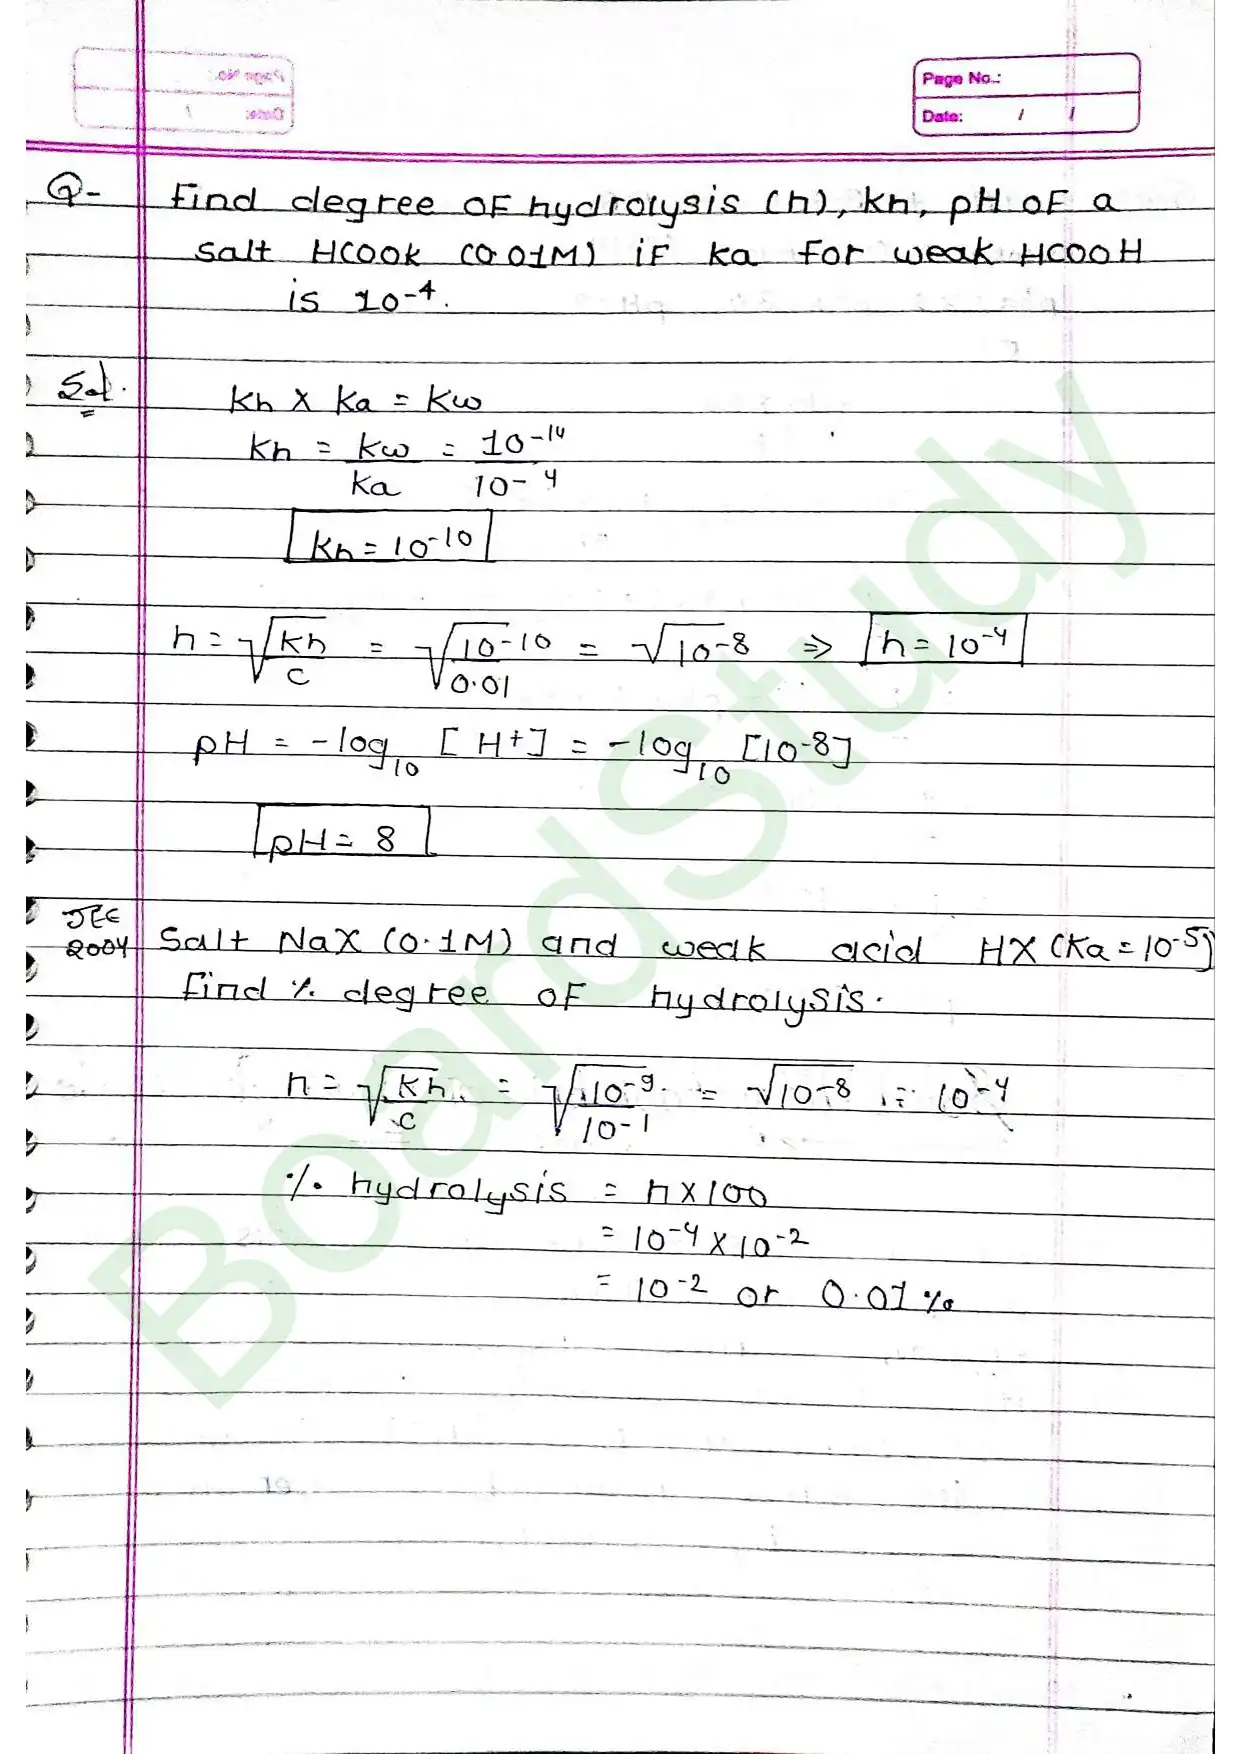 Page No.:
Date: / /
Q- Find degree of hydrolysis (h), kh, pH of a
salt HCOOK (0.01M) if ka for weak HCOOH
is 10⁻⁴.
Sol.
kh x ka = kw
kh = kw/ka = 10⁻¹⁴/10⁻⁴
kh = 10⁻¹⁰
h = √(kh/c) = √(10⁻¹⁰/0.01) = √10⁻⁸ => h = 10⁻⁴
pH = -log₁₀ [H⁺] = -log₁₀ [10⁻⁸]
pH = 8
JEE
2004
Salt NaX (0.1M) and weak acid HX (Ka = 10⁻⁵)
find % degree of hydrolysis.
h = √(kh/c) = √(10⁻⁹/10⁻¹) = √10⁻⁸ = 10⁻⁴
% hydrolysis = h x 100
= 10⁻⁴ x 10⁻²
= 10⁻² or 0.01 %
BoardStudy